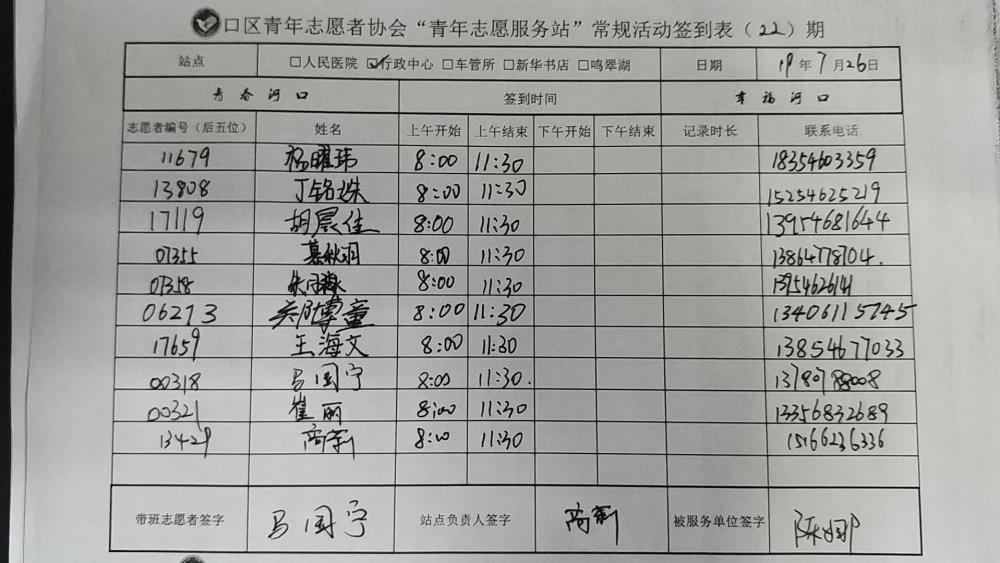 口区青年志愿者协会“青年志愿服务站”常规活动签到表（22）期
站点 □人民医院 ☑行政中心 □车管所 □新华书店 □鸣翠湖 日期 19年7月26日
青春河口 签到时间 幸福河口
志愿者编号（后五位） 姓名 上午开始 上午结束 下午开始 下午结束 记录时长 联系电话
11679 杨曜玮 8:00 11:30 18354603359
13808 丁铭姝 8:00 11:30 15254625219
17119 胡晨佳 8:00 11:30 13954681644
07355 綦秋羽 8:00 11:30 13864778704.
07358 8:00 11:30
06273 8:00 11:30 13406115745
17659 王海文 8:00 11:30 13854677033
00318 马国宁 8:00 11:30. 13780788008
00321 崔丽 8:00 11:30 13356832689
13429 商莉 8:00 11:30 15166236336
带班志愿者签字 马国宁 站点负责人签字 商莉 被服务单位签字